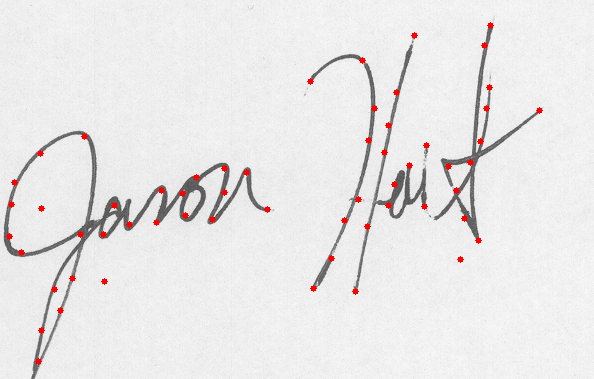 Jason Hart